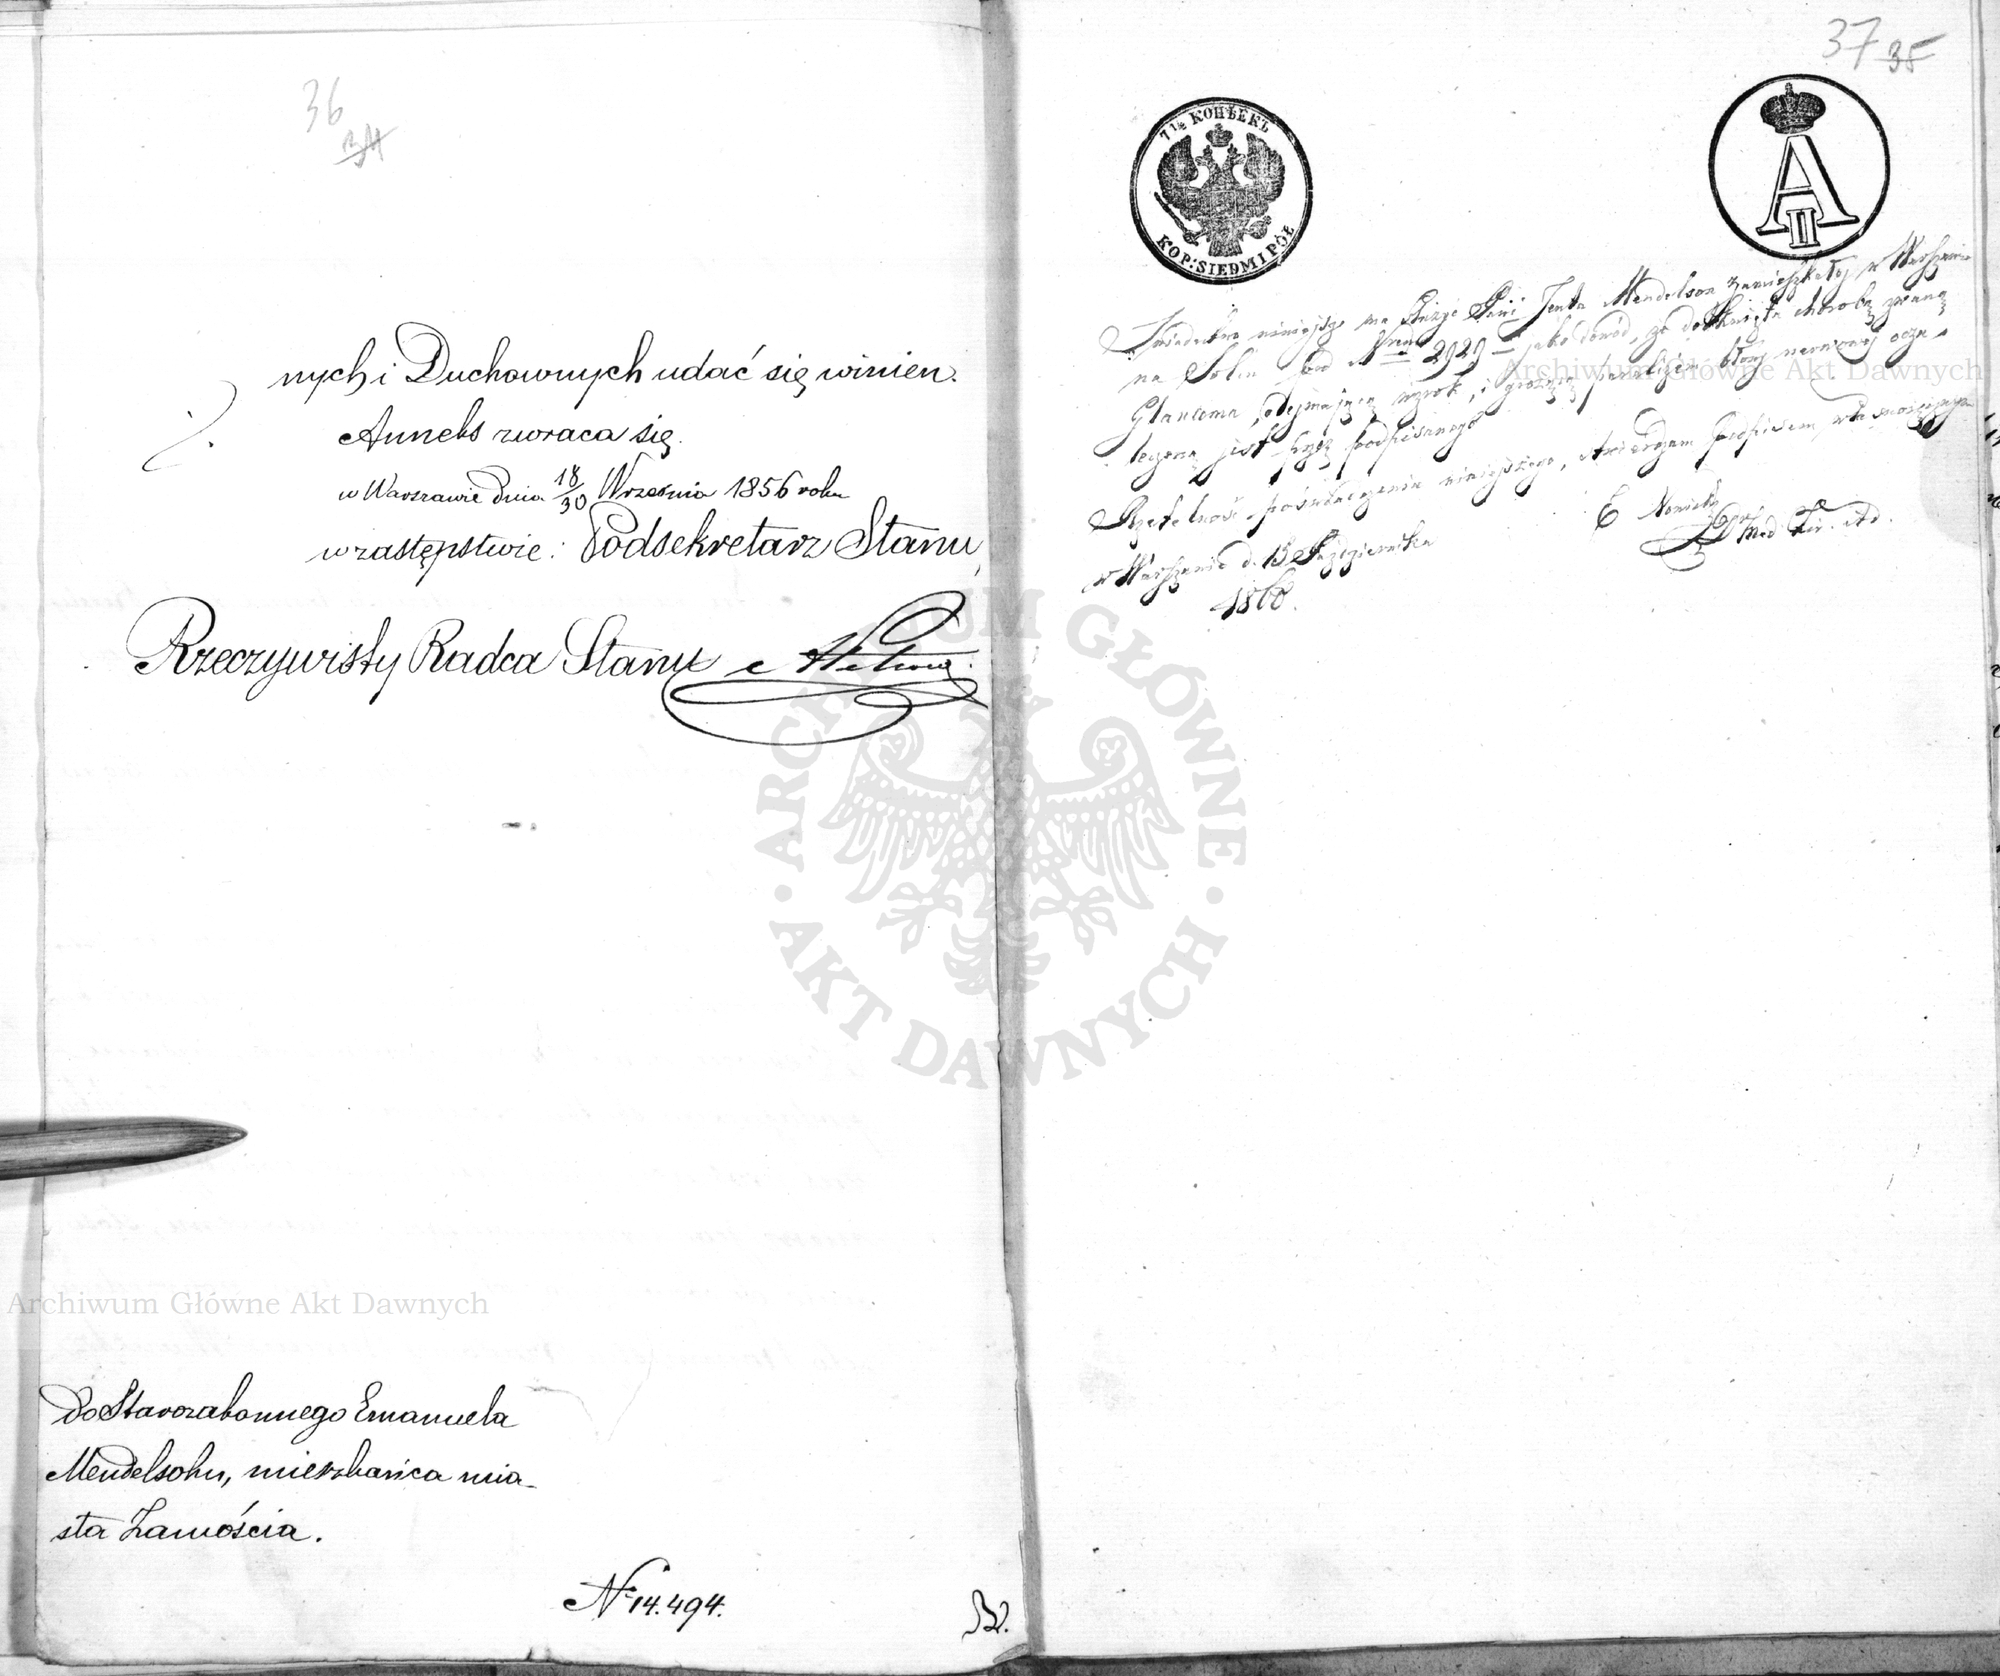 36
34
nych i Duchownych udać się winien.
Anneks zwraca się.
w Warszawie dnia 18/30 Września 1856 roku
w zastępstwie: Podsekretarz Stanu,
Rzeczywisty Radca Stanu
do Starozakonnego Emanuela
Mendelsohn, mieszkańca mia-
sta Zamościa.
№ 14.494.
37 35
7 ½ КОПѢЕКЪ
KOP: SIEDM I PÓŁ
A II
Świadectwo niniejsze ma służyć Pani Jenta Mendelson zamieszkałej w Warszawie
na Solin pod Nrem 2929 – jako dowód, że dotknięta chorobą zwaną
Glaucoma, odejmującą wzrok, i grożącą paraliżem błony nerwowej ocza-
leczoną jest przez podpisanego
Rzetelność poświadczenia niniejszego, stwierdzam podpisem własnoręcznym
w Warszawie d. 15 Października
1860.
E Nowicki
Med. Chir. itd.
Archiwum Główne Akt Dawnych
Archiwum Główne Akt Dawnych
ARCHIWUM GŁÓWNE
AKT DAWNYCH